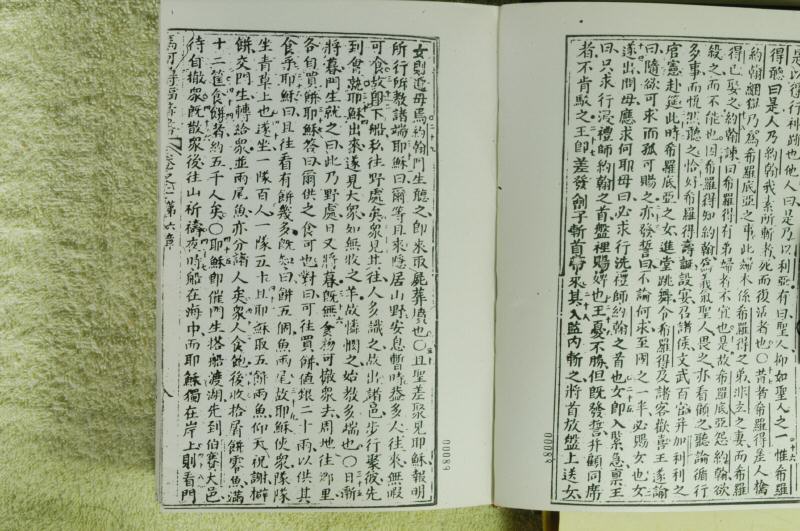 是以得行利跡也他人曰是乃以利亞有曰聖人抑如聖人之一惟希羅
得聽曰是人乃約翰我素所斬者死而復活者也〇昔者希羅得差人擒
約翰綑獄乃為希羅底亞之事此婦本係希羅得之弟非立之妻而希羅
得已娶之約翰諫曰希羅得有弟婦者不宜也是故希羅底亞怨約翰欲
殺之而不能也因希羅得知約翰為義敬聖人畏之亦看顧之聽論循行
多事而慌然聽之恰好希羅得壽誕設宴乃諸侯文武百官并加利利之
官憲赴筵此時希羅底亞之女進堂跳舞令希羅得及諸客歡喜王遂諭
曰隨欲可求而孤可賜之亦發誓曰不論何求至國之一半必賜女也女
遂出問母應求何耶母曰必求行洗禮師約翰之首也女即入緊急稟王
曰只求行浸禮師約翰之首盤裡賜婢也王憂不勝但既發誓并顧同席
者不肯駁之王即差發劊子斬首帶來其入監內斬之將首放盤上送女
00088
女則遞母焉約翰門生聽之即來取屍葬墳也〇且聖差聚見耶穌報明
所行所教諸端耶穌曰爾等且來隱居山野安息暫時蓋多人往來無暇
可食故即下船私往野處矣衆見其往人多識之故出諸邑步行聚彼先
到會就耶穌出來遂見大衆如無牧之羊故憐憫之始教多端也〇日漸
將暮門生就之曰此乃野處日又將暮既無食物可撤衆去周地往鄉里
各自買餅耶穌答曰爾供之食可也對曰可往買餅值銀二十兩以供其
食乎耶穌曰且往看有餅幾多既知曰餅五個魚兩尾故耶穌使衆隊隊
坐青草上也遂坐一隊百人一隊五十且耶穌取五餅兩魚仰天祝謝擗
餅交門生轉給衆並兩尾魚亦分諸人矣衆人食飽後收拾屑餅零魚滿
十二筐食餅者約五千人矣〇耶穌即催門生搭船渡湖先到伯賽大邑
待自撤衆既散衆後往山祈禱夜時船在海中而耶穌獨在岸上則看門
馬可傳福音書 卷之二 第六章
00089